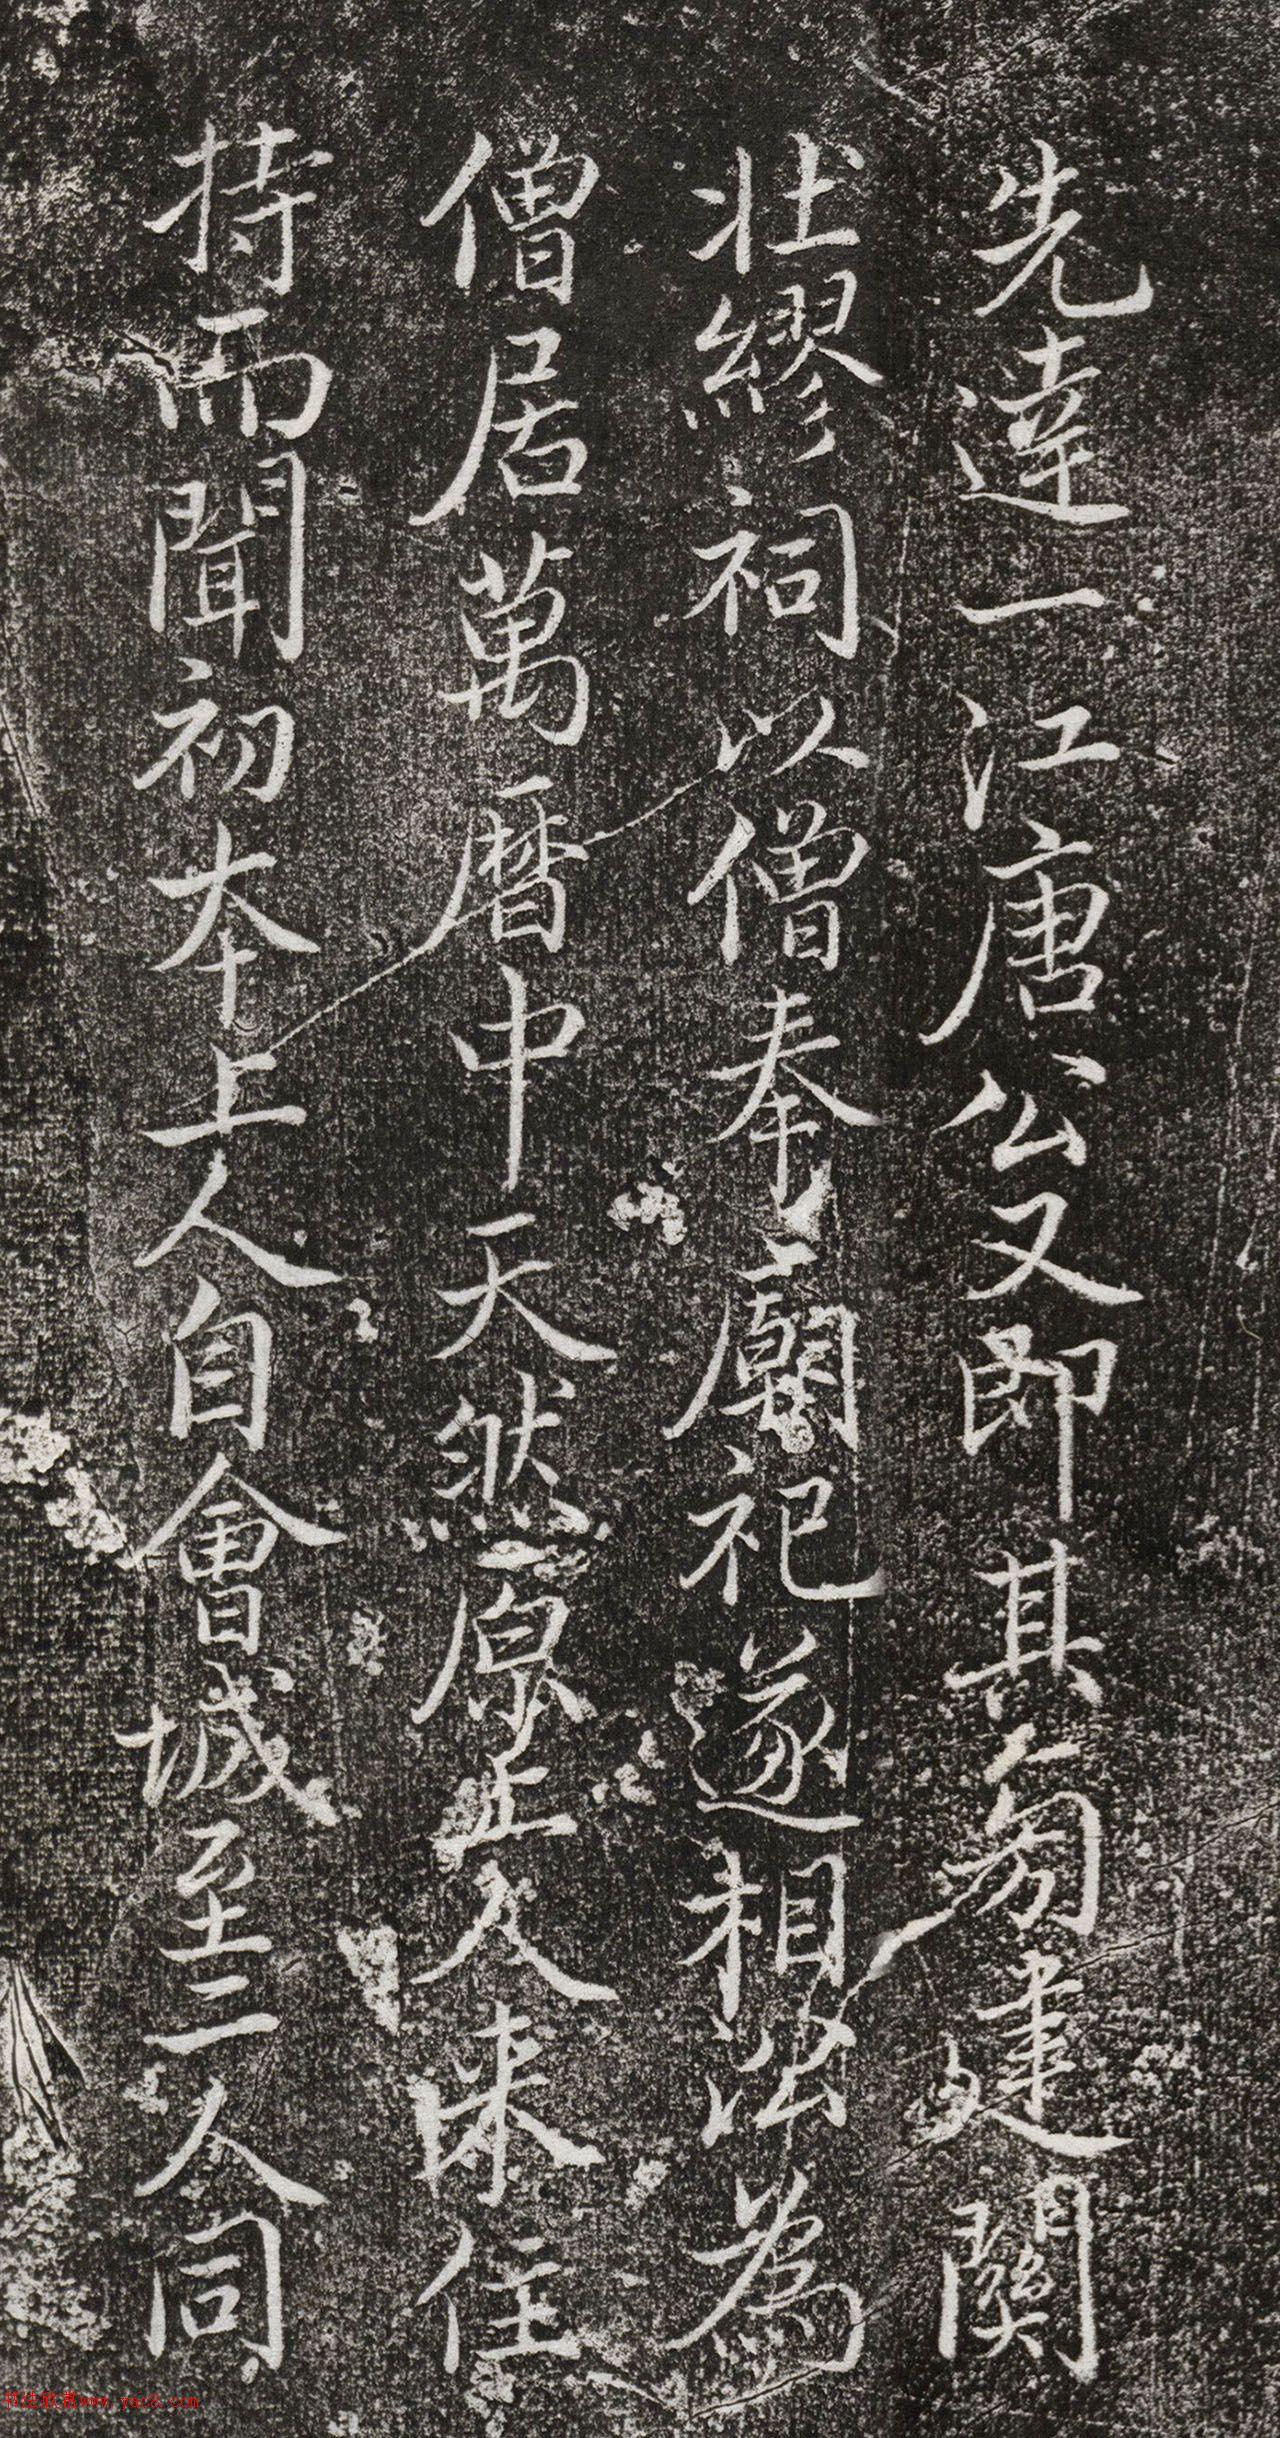 先達一江唐公又即其旁建關
壯繆祠以僧奉廟祀遂相沿為
僧居萬曆中天然原正人來住
持而聞初本上人自會城至二人同
书法欣赏www.yac8.com